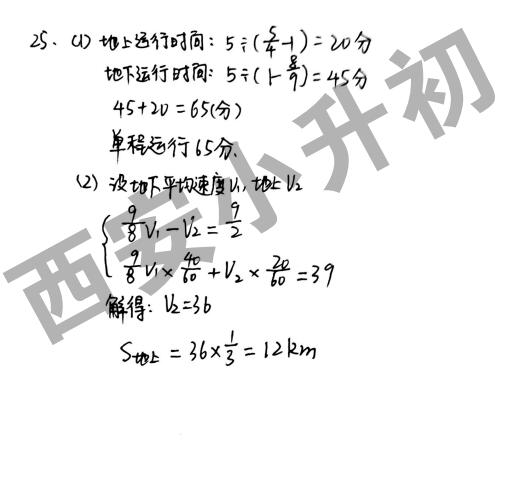 25、(1) 地上运行时间：5÷(5/4-1)=20分
地下运行时间：5÷(1-8/9)=45分
45+20=65(分)
单程运行65分.
(2) 设地下平均速度V₁，地上V₂
{ 9/8 V₁-V₂=9/2
9/8 V₁×40/60+V₂×20/60=39
解得：V₂=36
S地上=36×1/3=12km
西安小升初